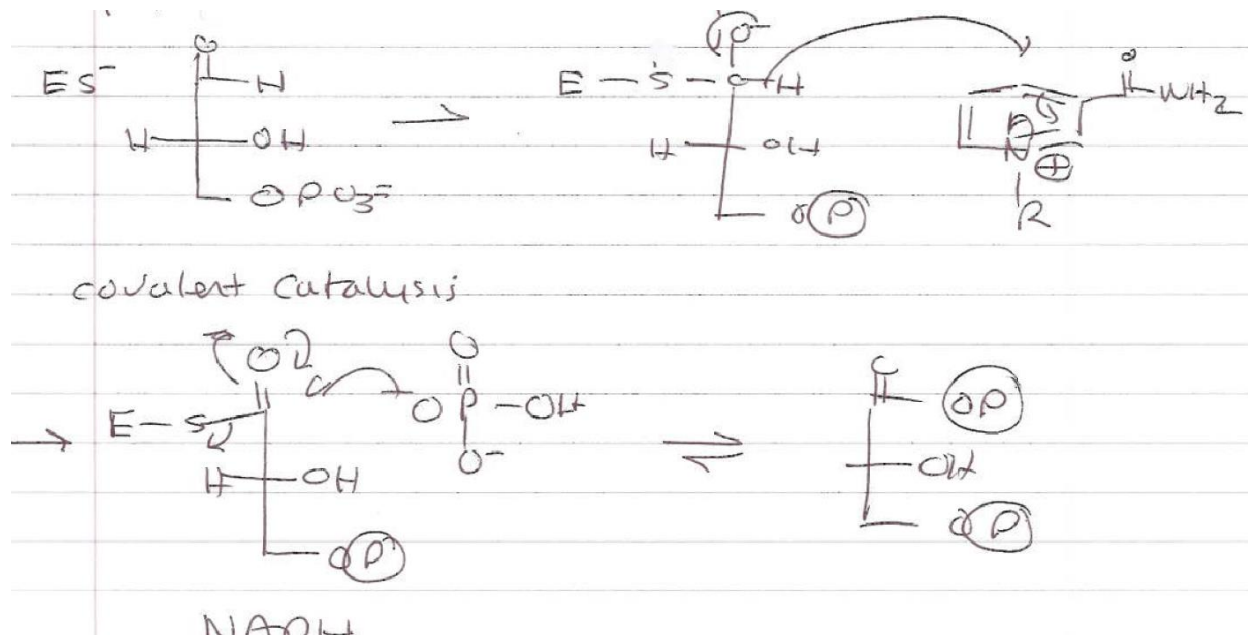 O
ES⁻ H
H OH
OPO₃⁼
O⁻
E - S - C H
H OH
O P
O
NH₂
N
⊕
R
covalent catalysis
O
E - S
H OH
O P
O
O P - OH
O⁻
O
OP
OH
O P
NADH